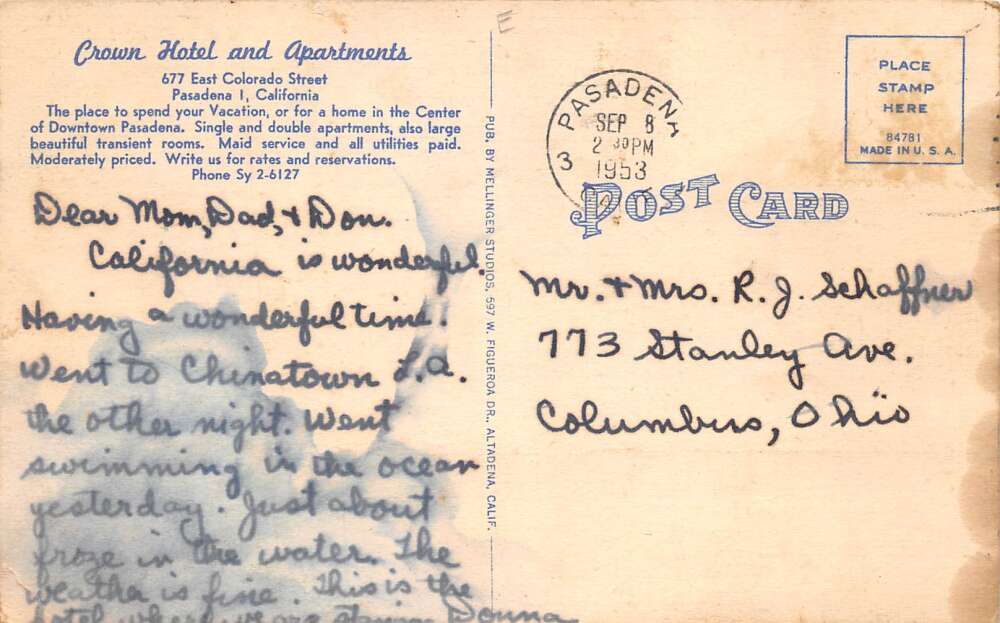 Crown Hotel and Apartments
677 East Colorado Street
Pasadena 1, California
The place to spend your Vacation, or for a home in the Center
of Downtown Pasadena. Single and double apartments, also large
beautiful transient rooms. Maid service and all utilities paid.
Moderately priced. Write us for rates and reservations.
Phone Sy 2-6127
Dear Mom, Dad, + Don.
California is wonderful.
Having a wonderful time.
Went to Chinatown L.A.
the other night. Went
swimming in the ocean
yesterday. Just about
froze in the water. The
weather is fine. This is the
hotel where we are staying Donna
PUB. BY MELLINGER STUDIOS, 597 W. FIGUEROA DR., ALTADENA, CALIF.
E
PASADENA
SEP 8
2 30 PM
1953
3
PLACE
STAMP
HERE
84781
MADE IN U. S. A.
POST CARD
Mr. + Mrs. R. J. Schaffner
773 Stanley Ave.
Columbus, Ohio